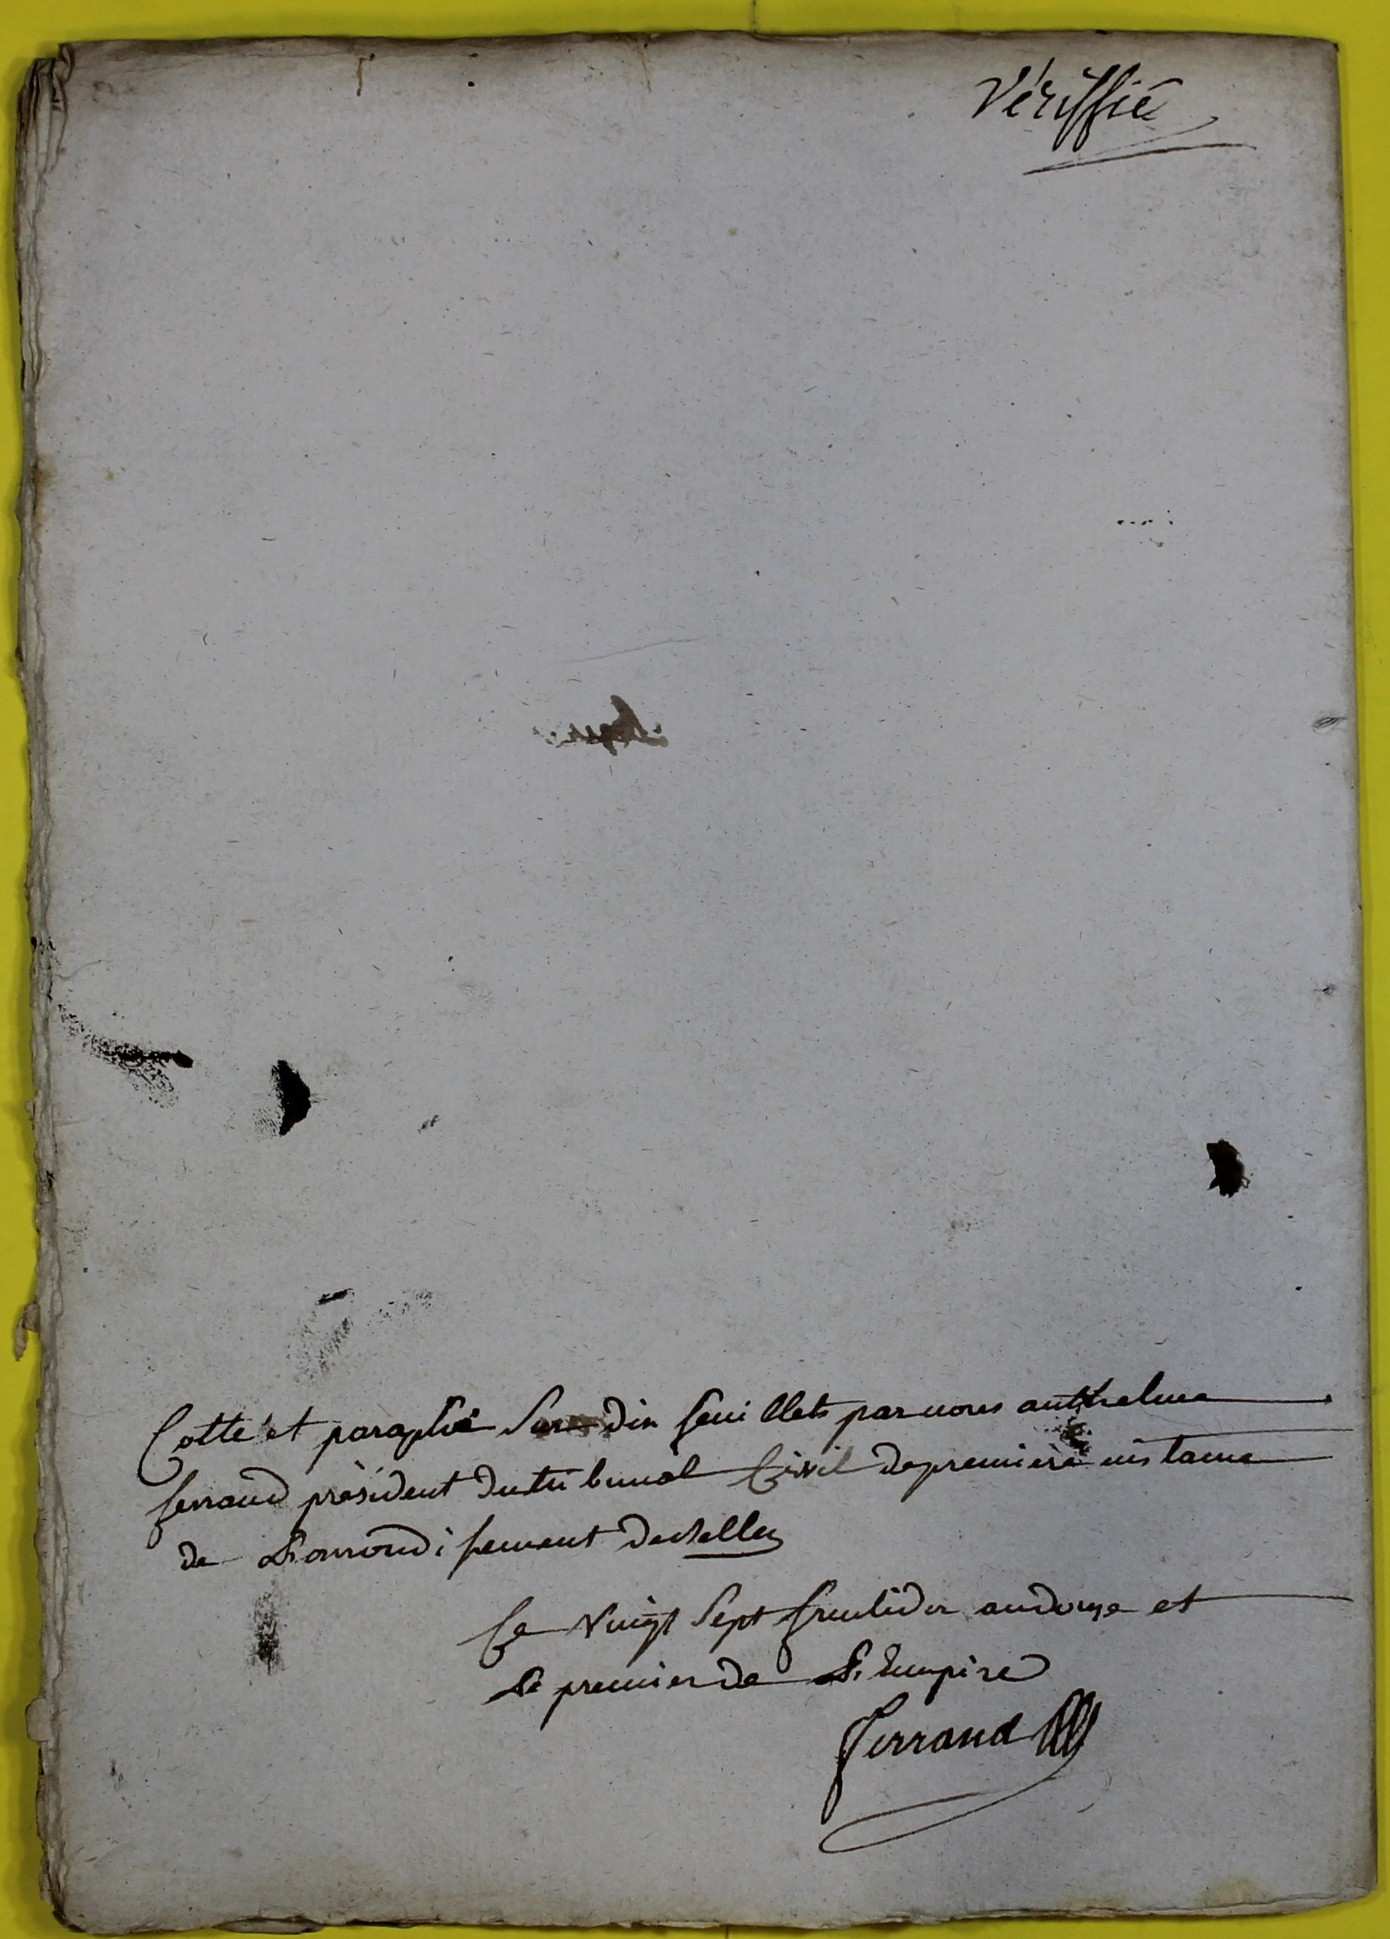 Vériffié
Cotté et paraphé Sur dix feuillets par nous anthelme
ferrand président du tribunal Civil de premiere instance
de L'arrondisement de belley
Le Vingt Sept fructidor an douze et
Le premier de L'Empire
ferrand